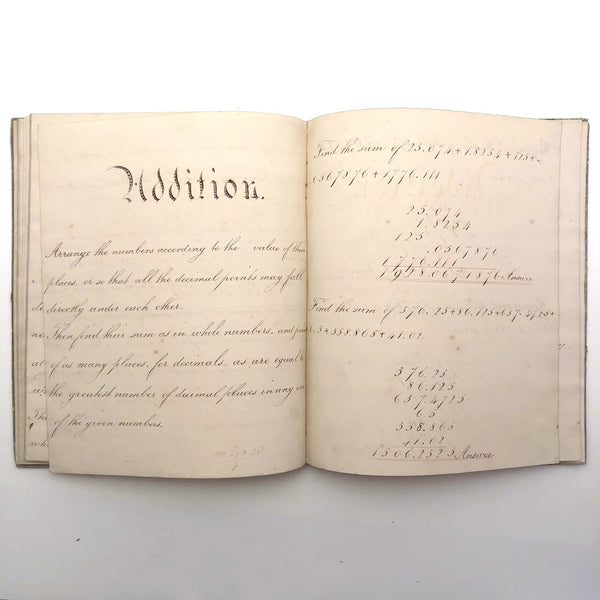 Addition.
Arrange the numbers according to the value of their
places, or so that all the decimal points may fall
directly under each other.
Then find their sum as in whole numbers, and point
of as many places, for decimals, as are equal to
the greatest number of decimal places in any one
of the given numbers.
Find the sum of 25.074+1.8254+125+.
0567876+1776.111
25.074
1.8254
125
.0567876
1776.111
1928.0671876 Answer
Find the sum of 376.25+86.125+637.4725+
6.5+358.865+41.02
376.25
86.125
637.4725
6.5
358.865
41.02
1506.2325 Answer